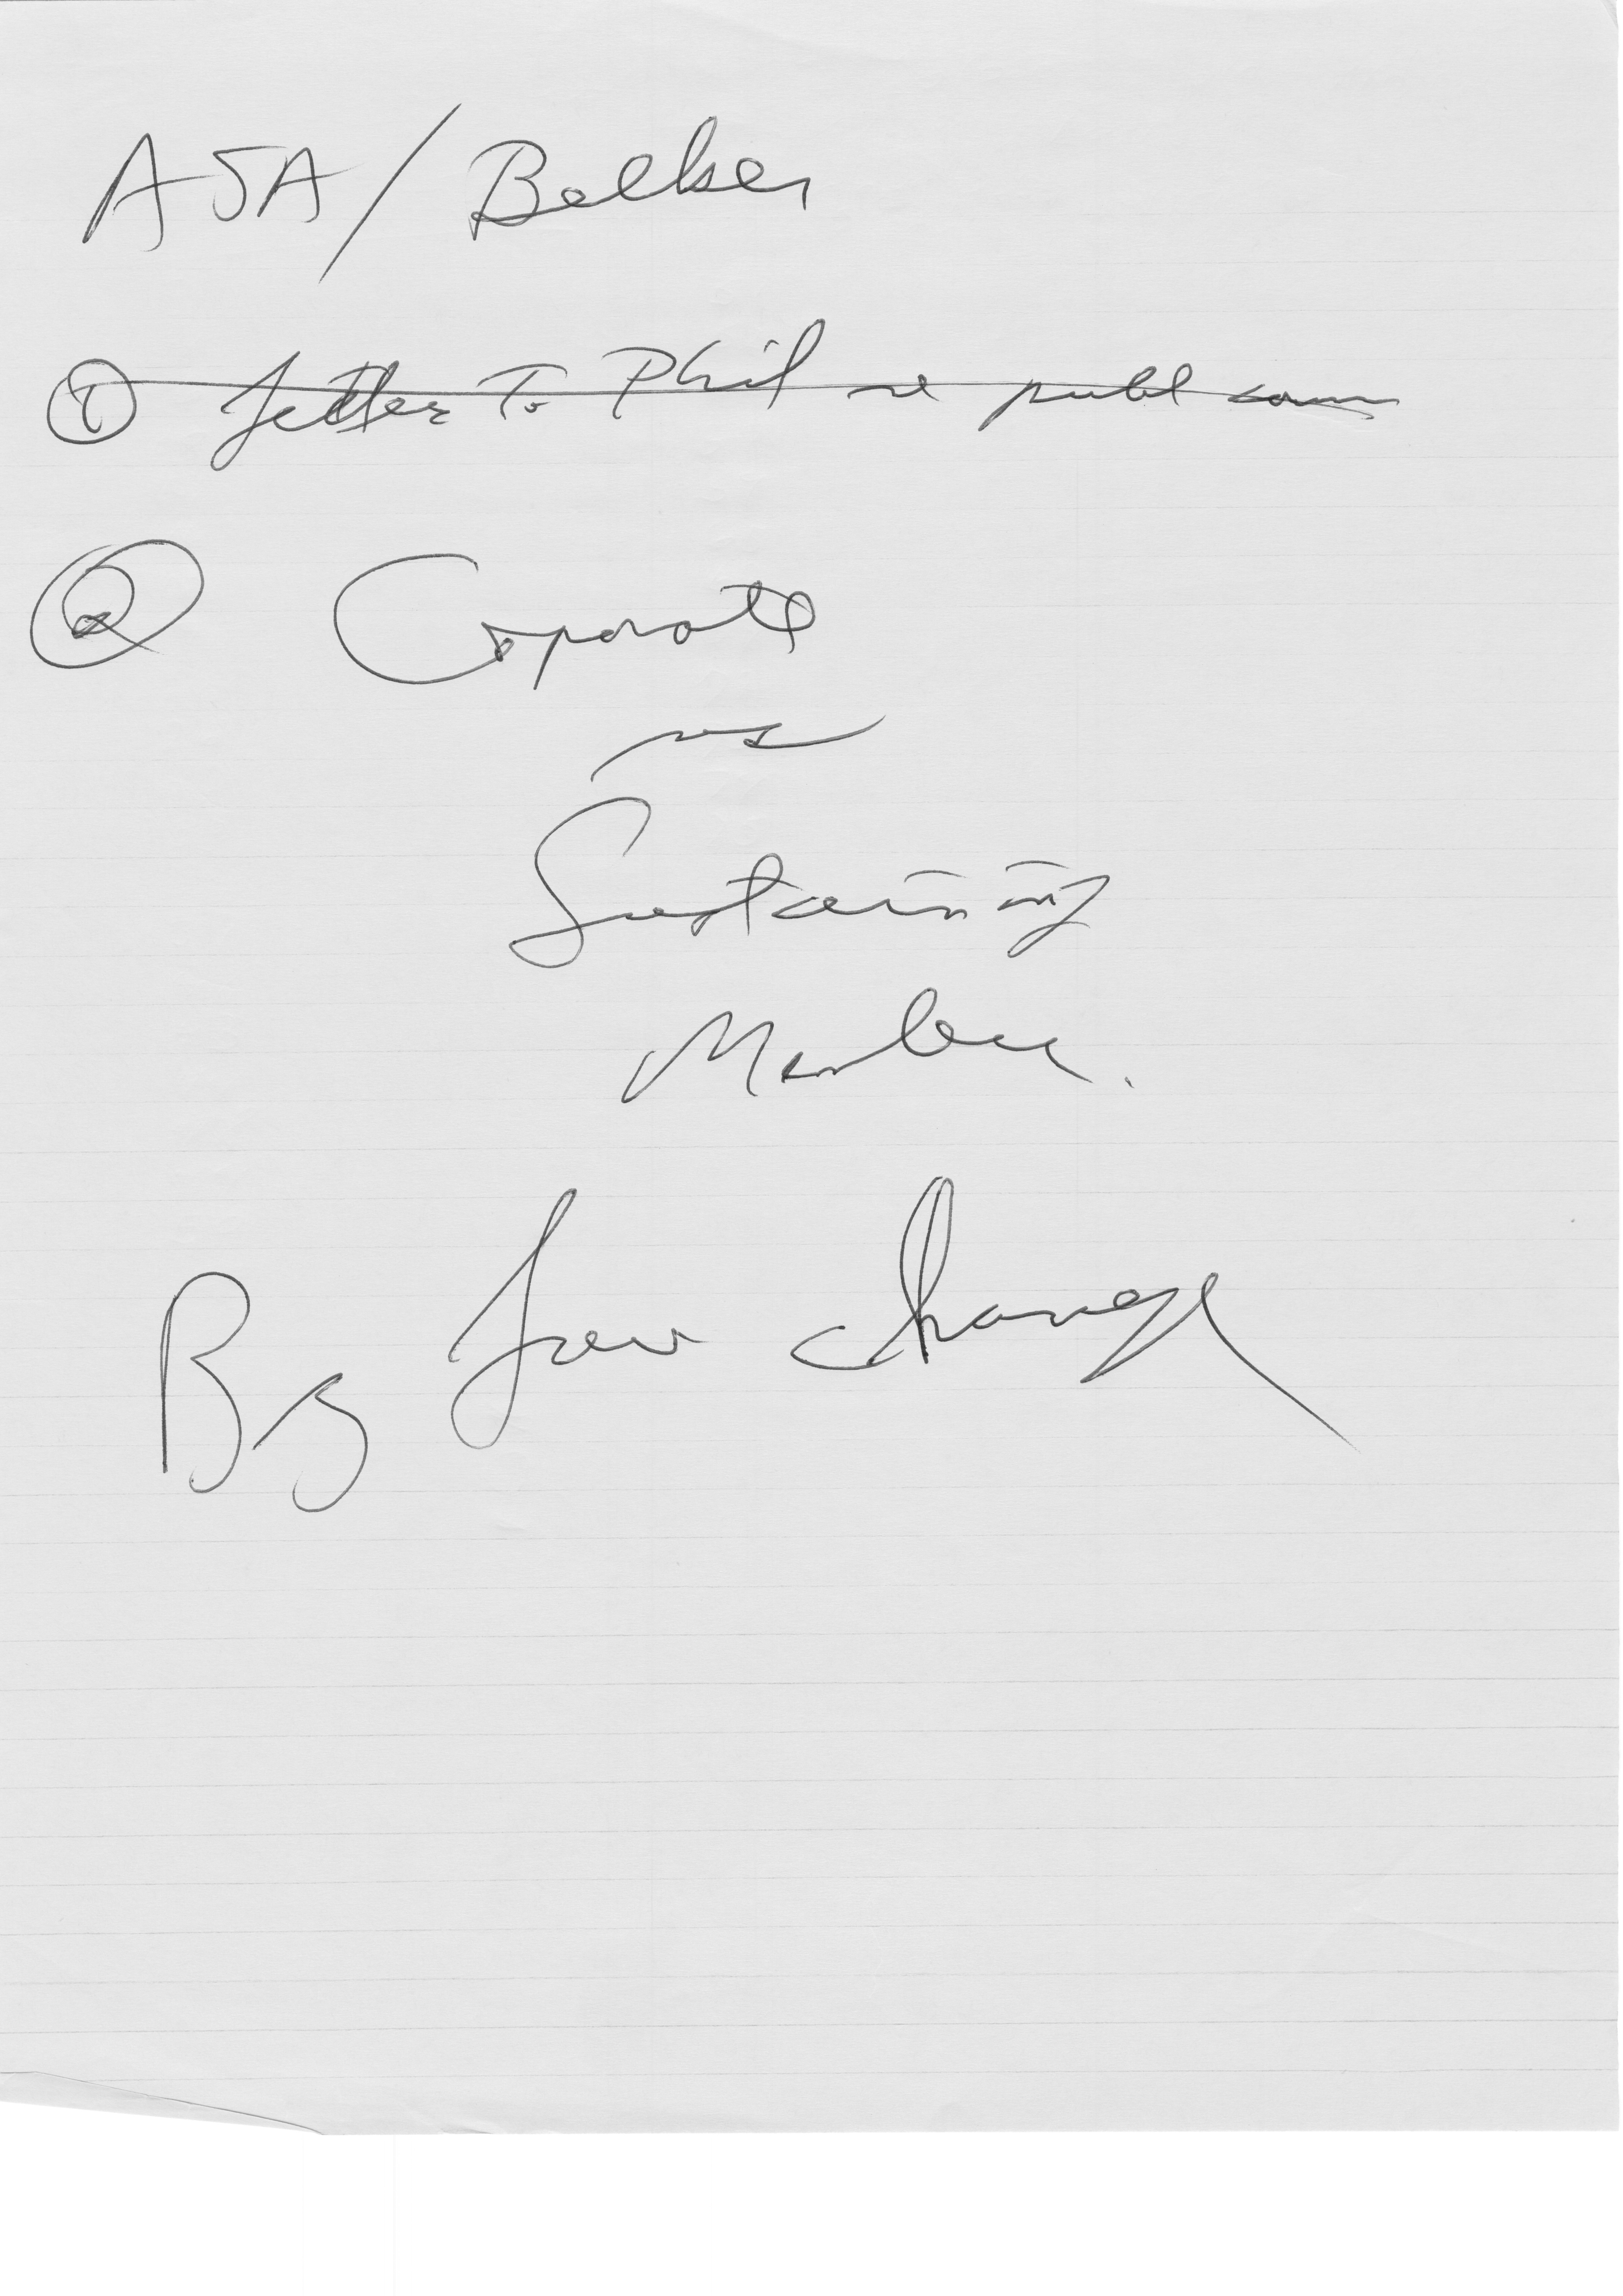 ASA/Boelker
① Letter To Phil re publ comm
② Corporate
vs
Sustaining
Member.
By law change